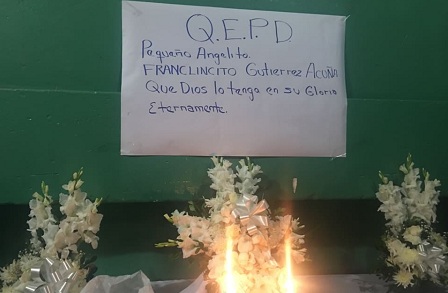 Q.E.P.D
Pequeño Angelito.
FRANCLINCITO Gutierrez Acuña
Que Dios lo tenga en su Gloria
Eternamente.